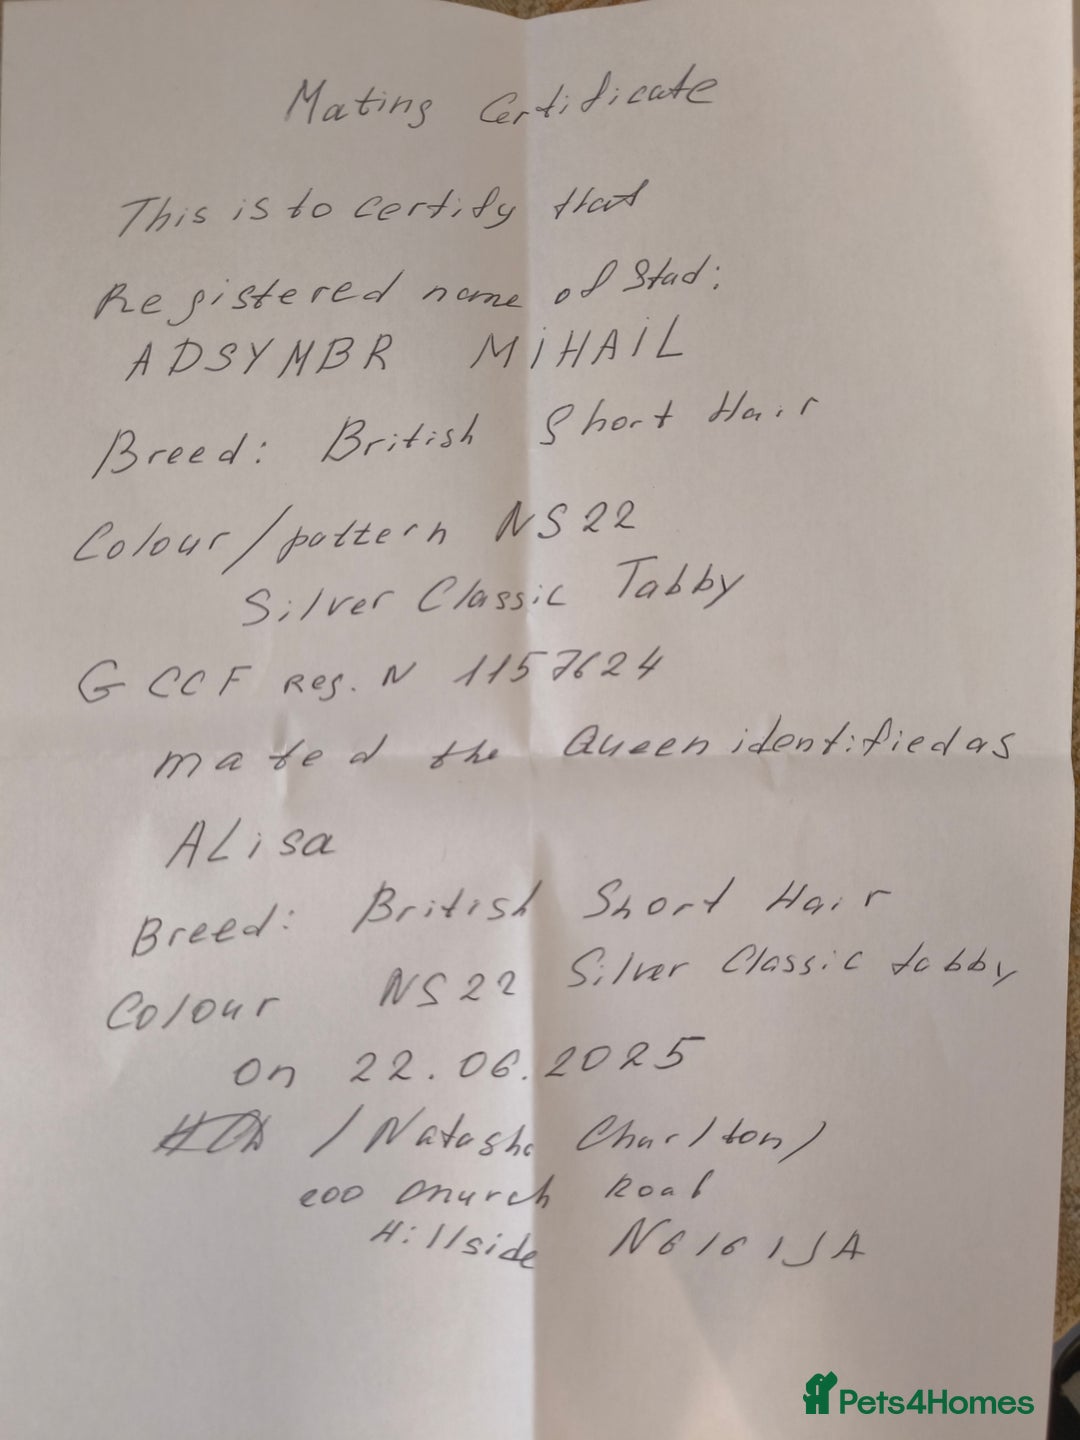 Mating Certificate
This is to certify that
Registered name of Stad:
ADSYMBR MIHAIL
Breed: British Short Hair
Colour/pattern NS22
Silver Classic Tabby
GCCF Reg. N 1157624
mated the Queen identified as
ALisa
Breed: British Short Hair
Colour NS22 Silver Classic tabby
on 22.06.2025
/Natasha Charlton/
200 Church Road
Hillside NG16 1JA
Pets4Homes